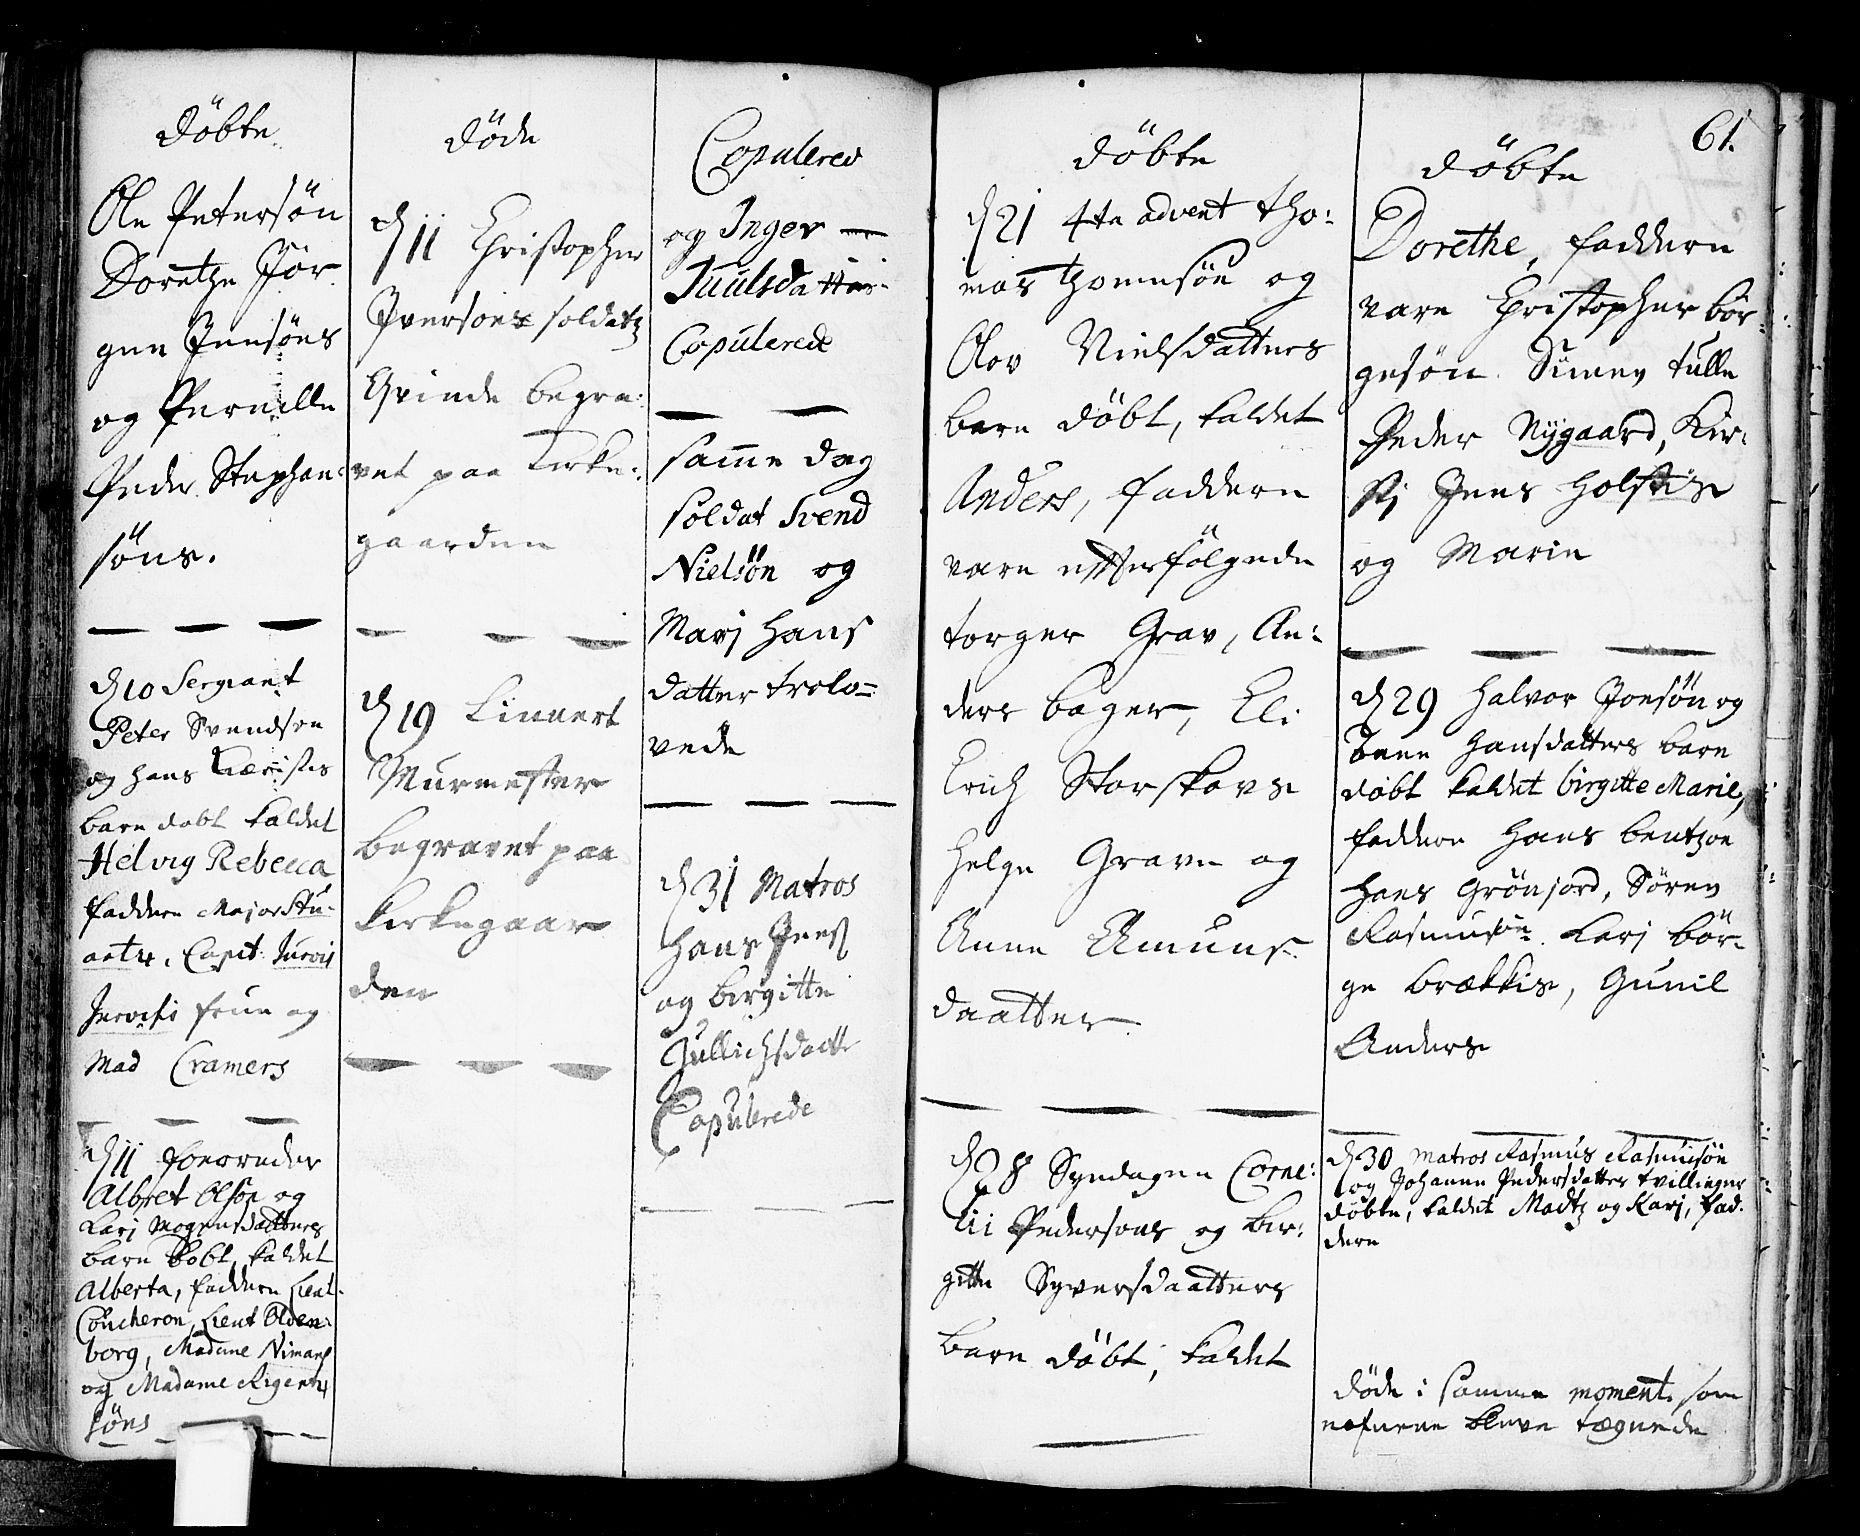 döbte
Ole Petersön
Dorethe Jör
gen Jensöns
og Pernille
Peder Stephan:
söns.
d 10 Sergiant
Peter Svendsøn
og hans Kieristes
barn døbt kaldet
Helvig Rebecca
faddere Major Stu-
aats, Capit: Juroij
frue og
Mad Cramers
d 11
Albret Olsøn og
Karj Mogensdaatters
barn døbt, kaldet
Alberta, faddere Leut.
Coucheron, Lieut Olden:
borg, Madame Nimans
og Madame
söns
döde
d 11 Christopher
Iversøns soldatz
Qvinde begra:
vet paa Kirke:
gaarden
d 19 Linnert
Murmester
begravet paa
kirkegaar
den
Copulered
og Inger
Juulsdatter
Copulerede
samme dag
soldat Svend
Nielsön og
Marj Hans
datter trolo=
vede
d 31 Matros
Hans Jens
og Birgitte
Gullichsdatt
Copulerede
döbte
d 21 4te advent Tho:
mas Thomesön og
Olov Nielsdatters
barn döbt, kaldet
Anders, faddere
vare efterfölgende
Torger Grav, An:
ders bager, Eli
Erich Storskovs
Helge Grave og
Anne Amuns
daatter
d 28 Syndagen Corne:
lii Pedersøns og Bir:
gitte Syversdaatters
barn döbt, kaldet
61.
döbte
Dorethe, faddere
vare Christopher bör:
gesön. Simen tulle
Peder Nygaard, Kir:
sti Jens Holstis
og Marie
d 29 Halvor Joensøn og
Anne Hansdatters barn
døbt kaldet birgitte Marie,
faddere Hans bentzøn
Hans Grönjord, Sören
Rasmusön. Karj bör-
ge brækkis, Gunil
Anders
d 30 Matros Rasmus Rasmusön
og Johanne Pedersdatter tvillinger
döbte, kaldet Madtz og Karj, fad.
dere
døde i samme moment som
nafnene bleve tegnede